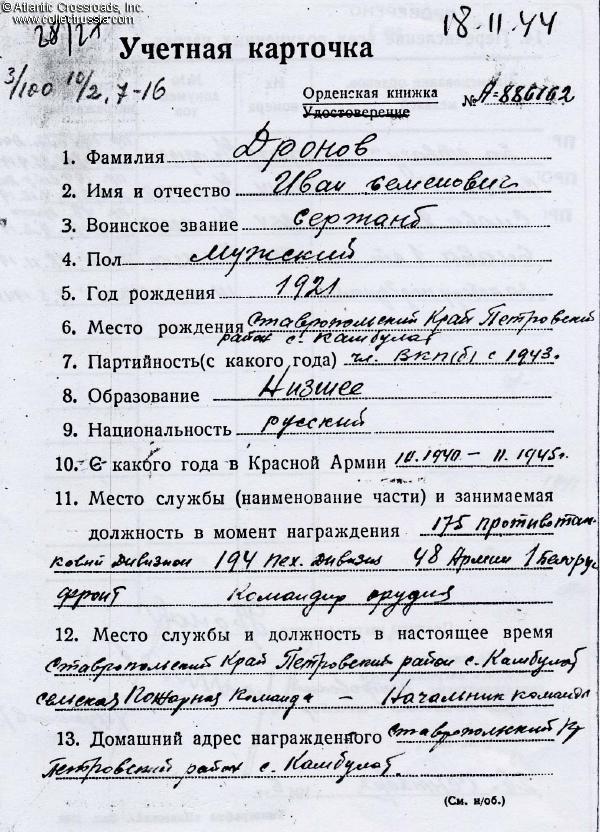 © Atlantic Crossroads, Inc.
www.collectrussia.com
28/21
18.11.44
Учетная карточка
3/100 10/2. 7-16
Орденская книжка
Удостоверение
№ А-886162
1. Фамилия Дронов
2. Имя и отчество Иван Семенович
3. Воинское звание сержант
4. Пол Мужский
5. Год рождения 1921
6. Место рождения Ставропольский Край Петровский
район с. Камбулат
7. Партийность(с какого года) чл. ВКП(б) с 1943г.
8. Образование Низшее
9. Национальность русский
10. С какого года в Красной Армии IV.1940 – II.1945г.
11. Место службы (наименование части) и занимаемая
должность в момент награждения 175 противотан-
ковий дивизион 194 пех. дивизия 48 Армии 1 Белорус
фронт Командир орудия
12. Место службы и должность в настоящее время
Ставропольский Край Петровский район с. Камбулат
сельская Пожарная Команда – Начальник команды
13. Домашний адрес награжденного Ставропольский Кр
Петровский район с. Камбулат.
(См. н/об.)